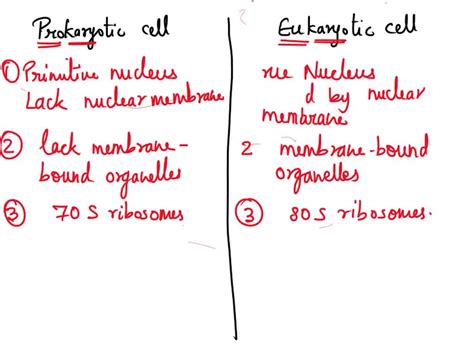 Prokaryotic cell
① Primitive nucleus
Lack nuclear membrane
② lack membrane-
bound organelles
③ 70 S ribosomes
Eukaryotic cell
rue Nucleus
d by nuclear
membrane
2 membrane-bound
organelles
③ 80 S ribosomes.